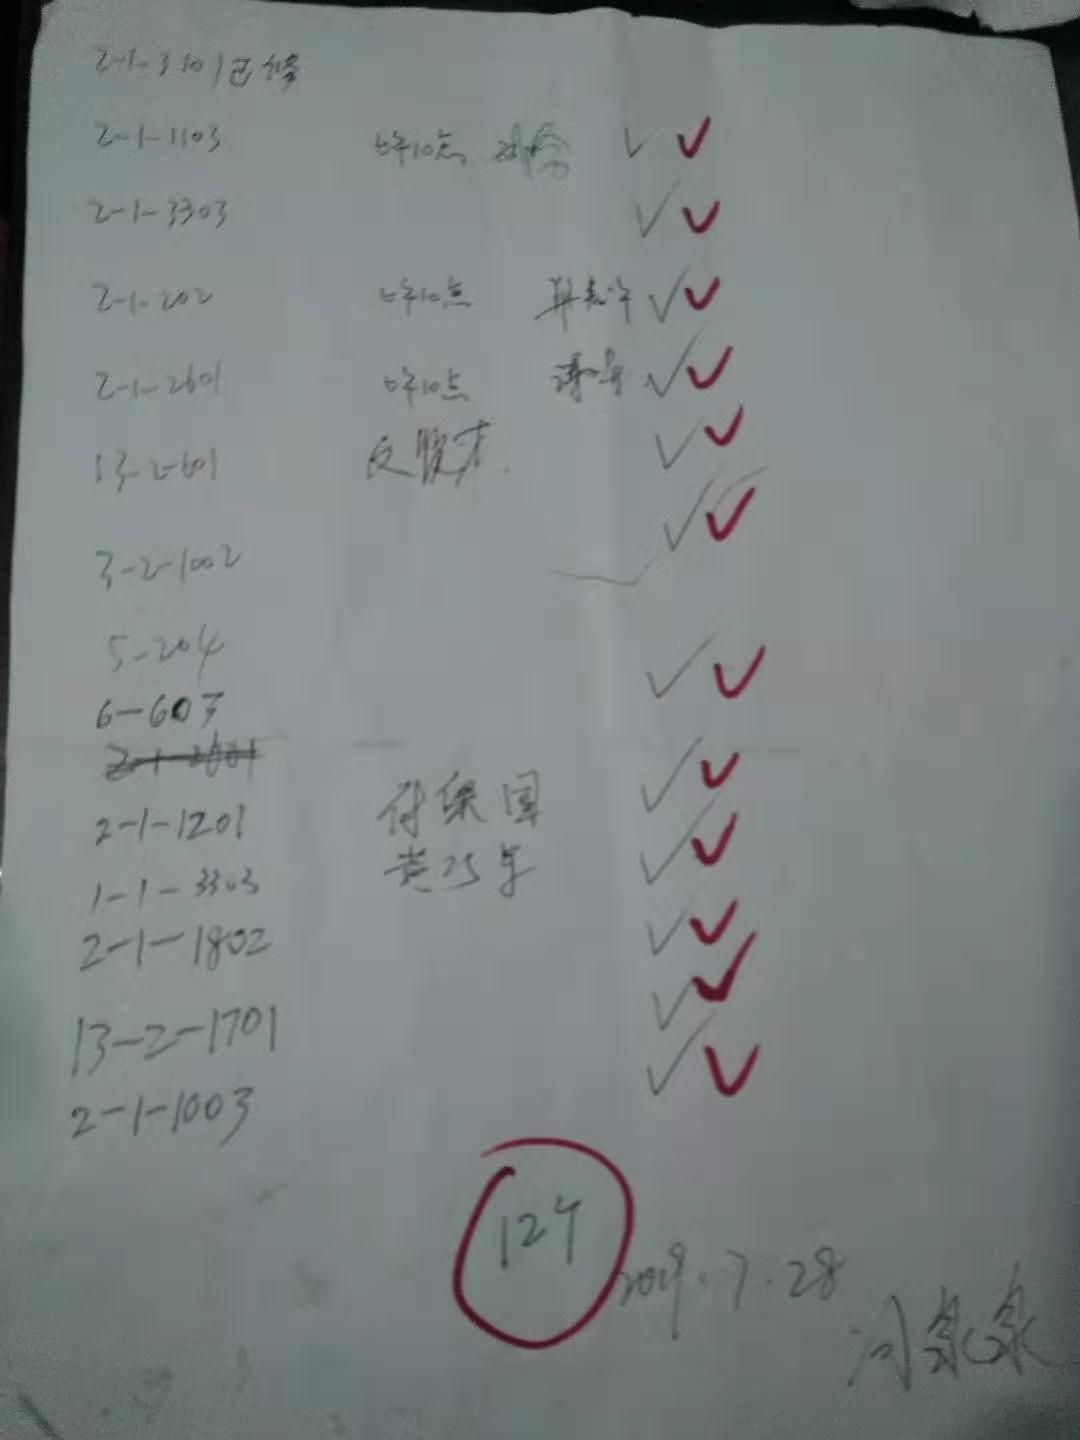 2-1-3101已修
2-1-1103 上午10点
2-1-3303
2-1-202 上午10点
2-1-2601 上午10点
13-2-601
3-2-1002
5-204
6-603
2-1-2601
2-1-1201 付保国
1-1-3303 黄25号
2-1-1802
13-2-1701
2-1-1003
12个
2019.7.28
闫泉泉